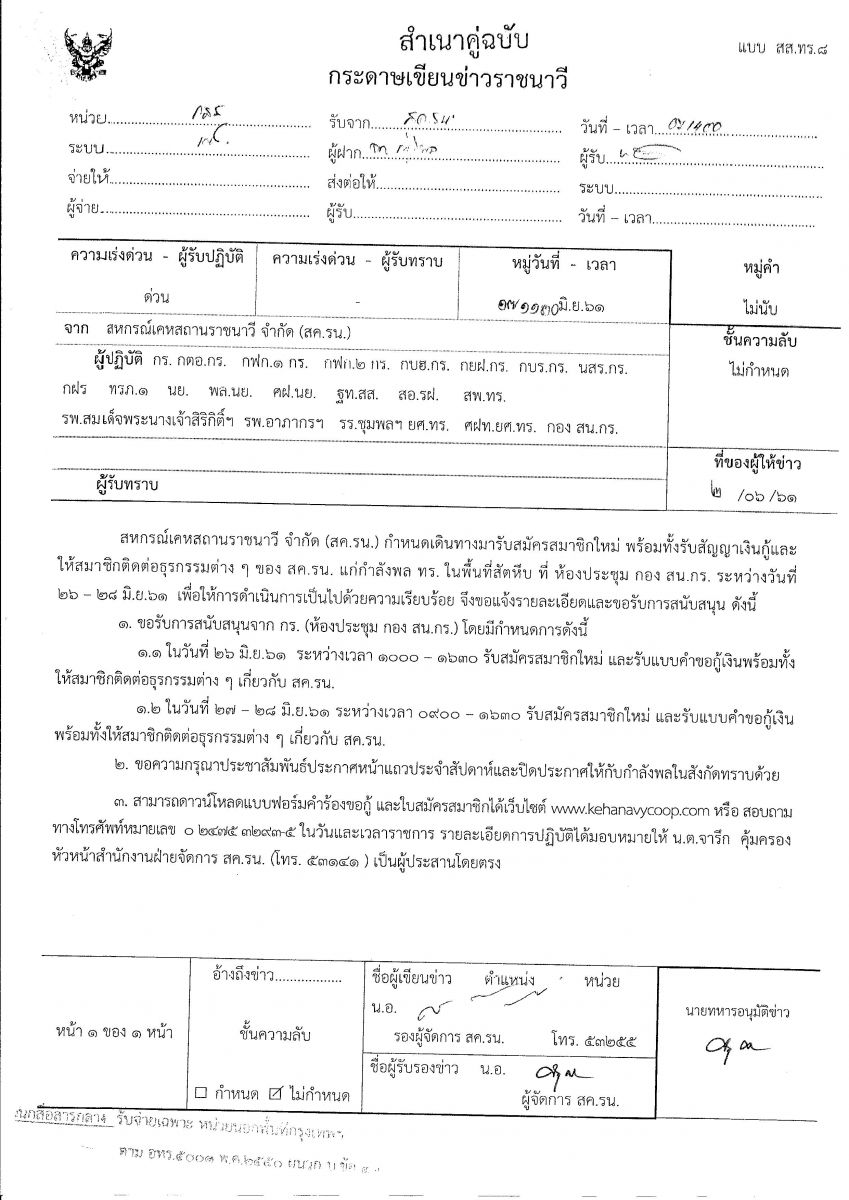 สำเนาคู่ฉบับ
กระดาษเขียนข่าวราชนาวี
แบบ สส.ทร.๘
หน่วย รับจาก วันที่ – เวลา
ระบบ ผู้ฝาก ผู้รับ
จ่ายให้ ส่งต่อให้ ระบบ
ผู้จ่าย ผู้รับ วันที่ – เวลา
ความเร่งด่วน - ผู้รับปฏิบัติ ความเร่งด่วน - ผู้รับทราบ หมู่วันที่ - เวลา หมู่คำ
ด่วน - ๑๗๑๑๓๐มิ.ย.๖๑ ไม่นับ
จาก สหกรณ์เคหสถานราชนาวี จำกัด (สค.รน.) ชั้นความลับ
ผู้ปฏิบัติ กร. กตอ.กร. กฟก.๑ กร. กฟก.๒ กร. กบฮ.กร. กยฝ.กร. กบร.กร. นสร.กร. ไม่กำหนด
กฝร ทรภ.๑ นย. พล.นย. ศฝ.นย. ฐท.สส. สอ.รฝ. สพ.ทร.
รพ.สมเด็จพระนางเจ้าสิริกิติ์ฯ รพ.อาภากรฯ รร.ชุมพลฯ ยศ.ทร. ศฝท.ยศ.ทร. กอง สน.กร.
ที่ของผู้ให้ข่าว
ผู้รับทราบ ๒ /๐๖ /๖๑
สหกรณ์เคหสถานราชนาวี จำกัด (สค.รน.) กำหนดเดินทางมารับสมัครสมาชิกใหม่ พร้อมทั้งรับสัญญาเงินกู้และ
ให้สมาชิกติดต่อธุรกรรมต่าง ๆ ของ สค.รน. แก่กำลังพล ทร. ในพื้นที่สัตหีบ ที่ ห้องประชุม กอง สน.กร. ระหว่างวันที่
๒๖ – ๒๘ มิ.ย.๖๑ เพื่อให้การดำเนินการเป็นไปด้วยความเรียบร้อย จึงขอแจ้งรายละเอียดและขอรับการสนับสนุน ดังนี้
๑. ขอรับการสนับสนุนจาก กร. (ห้องประชุม กอง สน.กร.) โดยมีกำหนดการดังนี้
๑.๑ ในวันที่ ๒๖ มิ.ย.๖๑ ระหว่างเวลา ๑๐๐๐ – ๑๖๓๐ รับสมัครสมาชิกใหม่ และรับแบบคำขอกู้เงินพร้อมทั้ง
ให้สมาชิกติดต่อธุรกรรมต่าง ๆ เกี่ยวกับ สค.รน.
๑.๒ ในวันที่ ๒๗ – ๒๘ มิ.ย.๖๑ ระหว่างเวลา ๐๙๐๐ – ๑๖๓๐ รับสมัครสมาชิกใหม่ และรับแบบคำขอกู้เงิน
พร้อมทั้งให้สมาชิกติดต่อธุรกรรมต่าง ๆ เกี่ยวกับ สค.รน.
๒. ขอความกรุณาประชาสัมพันธ์ประกาศหน้าแถวประจำสัปดาห์และปิดประกาศให้กับกำลังพลในสังกัดทราบด้วย
๓. สามารถดาวน์โหลดแบบฟอร์มคำร้องขอกู้ และใบสมัครสมาชิกได้เว็บไซต์ www.kehanavycoop.com หรือ สอบถาม
ทางโทรศัพท์หมายเลข ๐ ๒๔๗๕ ๓๒๙๓-๕ ในวันและเวลาราชการ รายละเอียดการปฏิบัติได้มอบหมายให้ น.ต.จารึก คุ้มครอง
หัวหน้าสำนักงานฝ่ายจัดการ สค.รน. (โทร. ๕๓๑๔๑ ) เป็นผู้ประสานโดยตรง
อ้างถึงข่าว ชื่อผู้เขียนข่าว ตำแหน่ง หน่วย
น.อ. นายทหารอนุมัติข่าว
หน้า ๑ ของ ๑ หน้า ชั้นความลับ รองผู้จัดการ สค.รน. โทร. ๕๓๒๕๕
ชื่อผู้รับรองข่าว น.อ.
☐ กำหนด ☑ ไม่กำหนด ผู้จัดการ สค.รน.
รับจ่ายเฉพาะ หน่วยนอกพื้นที่กรุงเทพฯ
ตาม อทร.๕๐๐๑ พ.ศ.๒๕๕๐ ผนวก